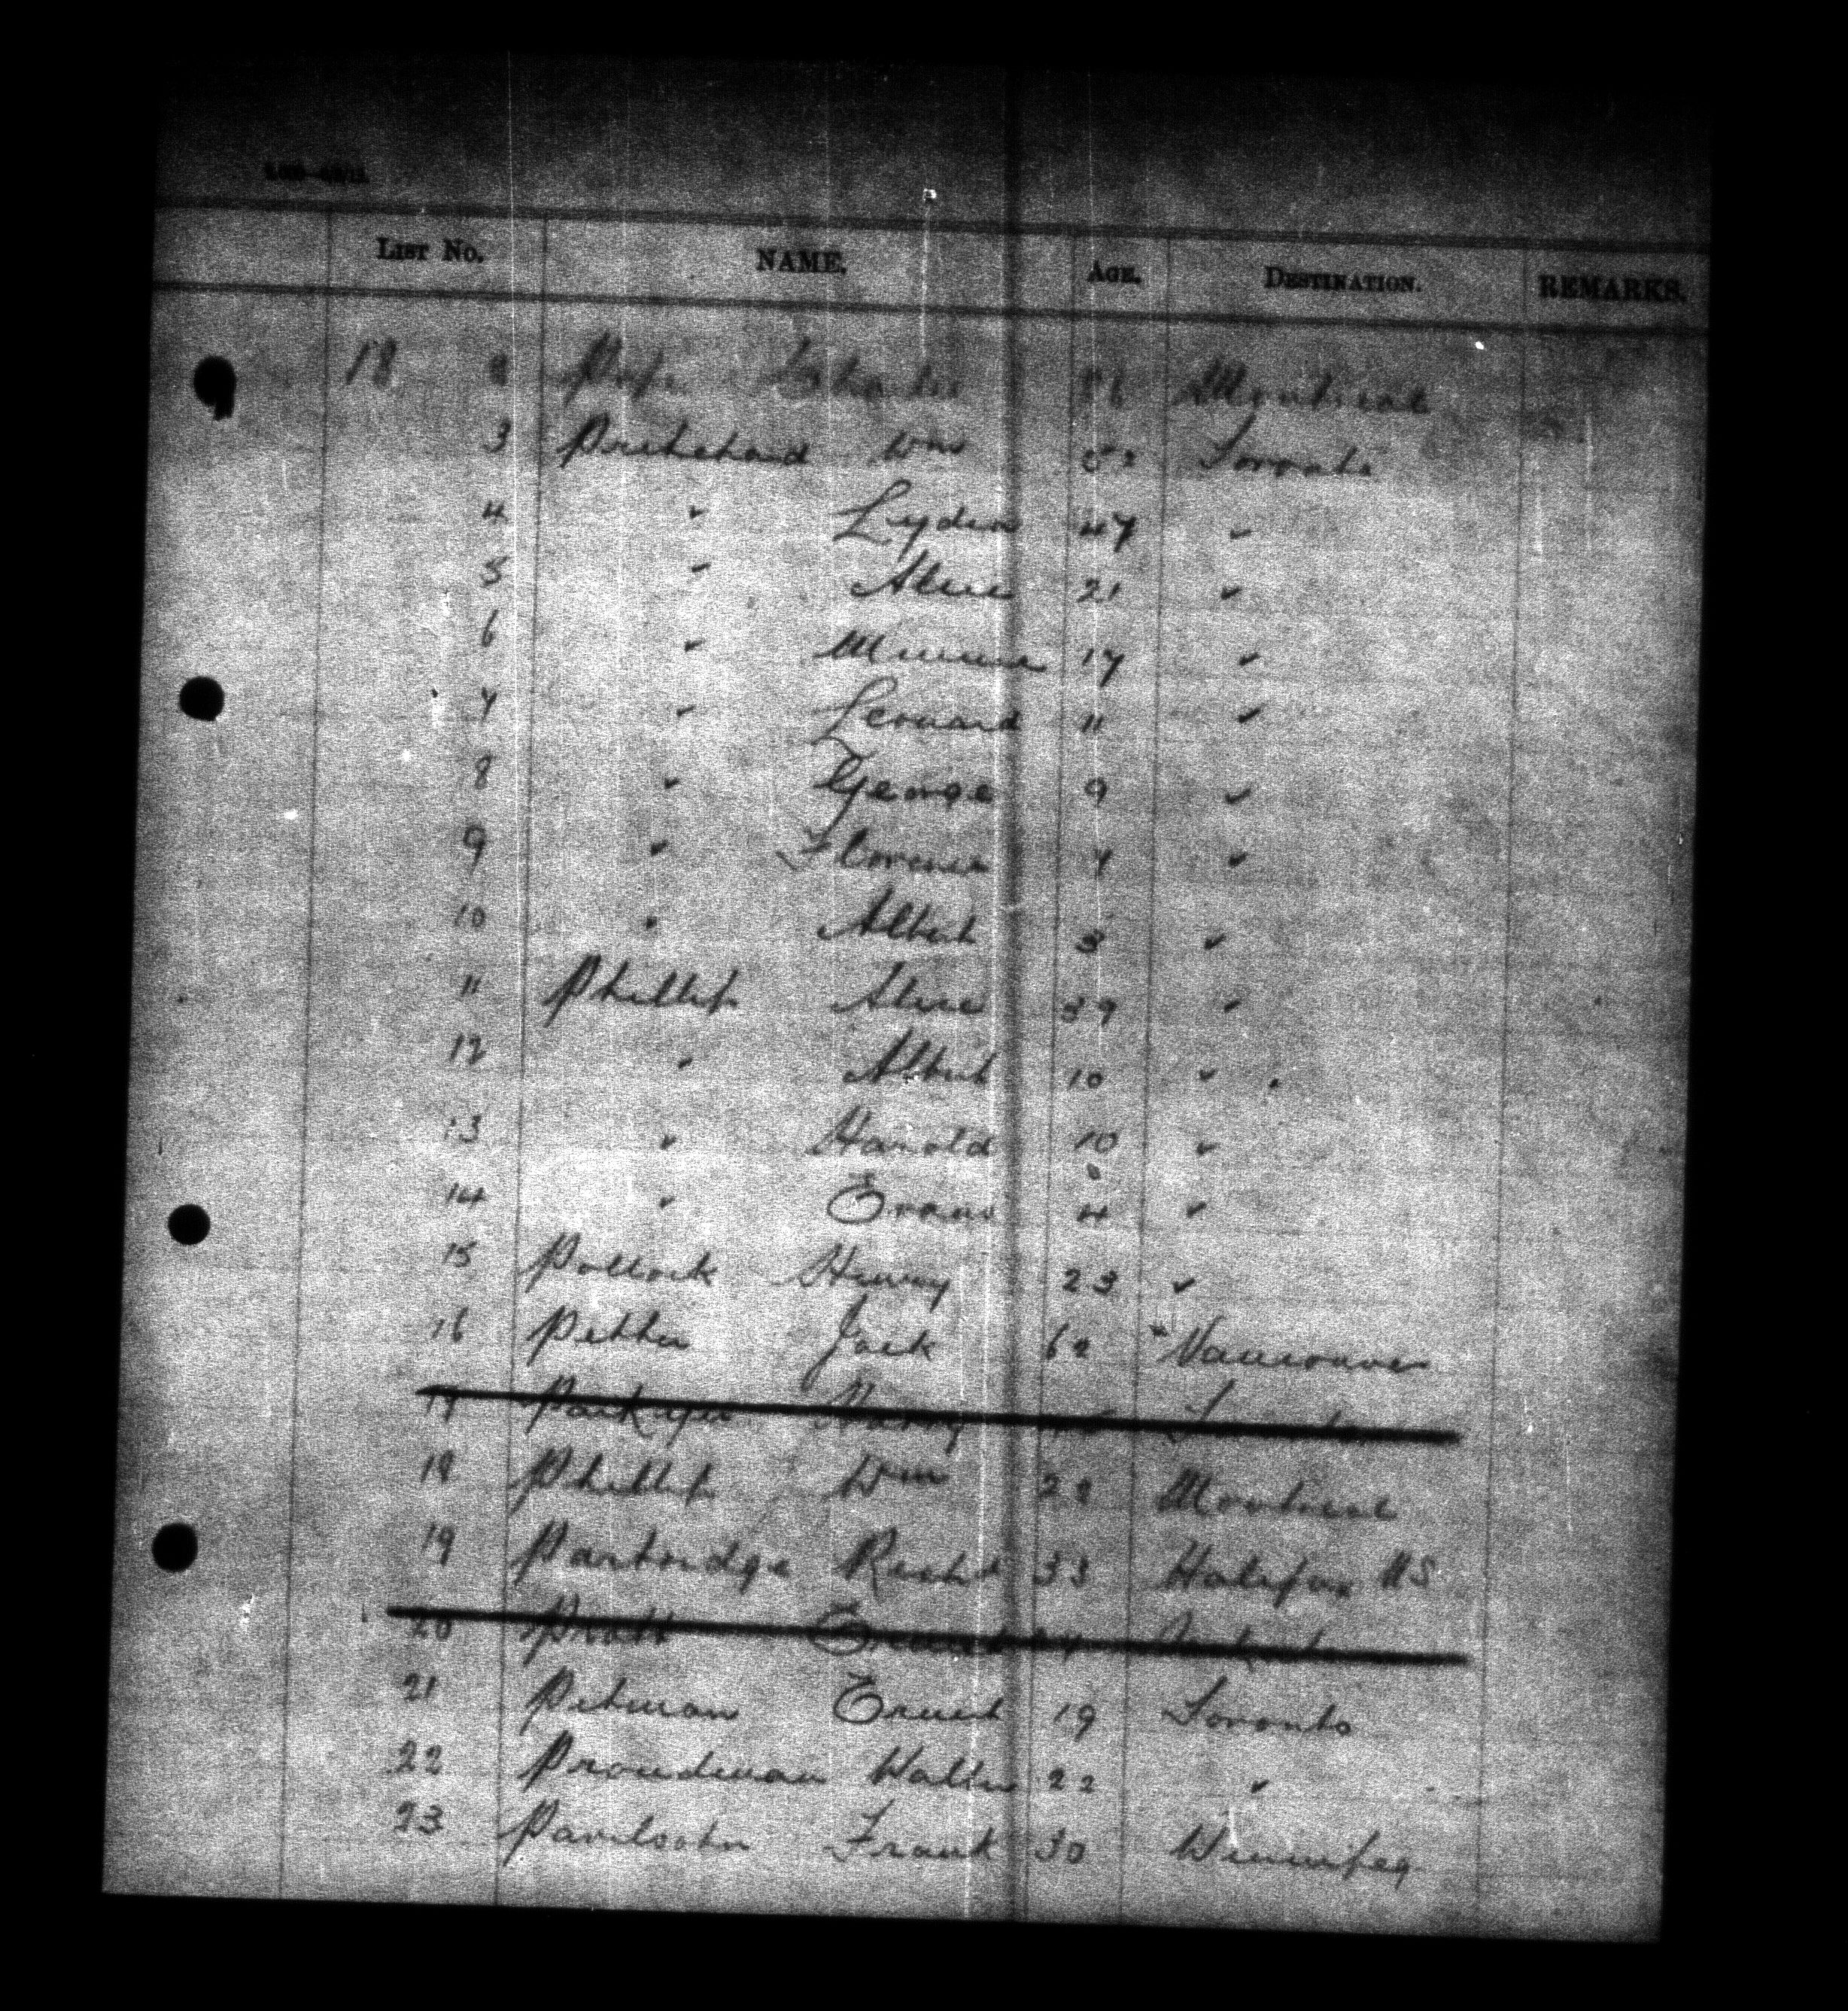 LIST No. NAME. AGE. DESTINATION. REMARKS.
18 Pope Montreal
3 Pritchard Wm 52 Toronto
4 " Lydia 47 "
5 " Alice 21 "
6 " Minnie 17 "
7 " Leonard 11 "
8 " George 9 "
9 " Florence 7 "
10 " Albert 3 "
11 Phillip Alice 39 "
12 " Albert 10 "
13 " Harold 10 "
14 " Evans 4 "
15 Pollock Henry 23 "
16 Petter Jack 62 Vancouver
17 Harry
18 Phillip Wm 28 Montreal
19 Partridge Richd 33 Halifax NS
20 Pratt Ernest
21 Petman Ernest 19 Toronto
22 Proudman Walter 22 "
23 Frank 30 Winnipeg